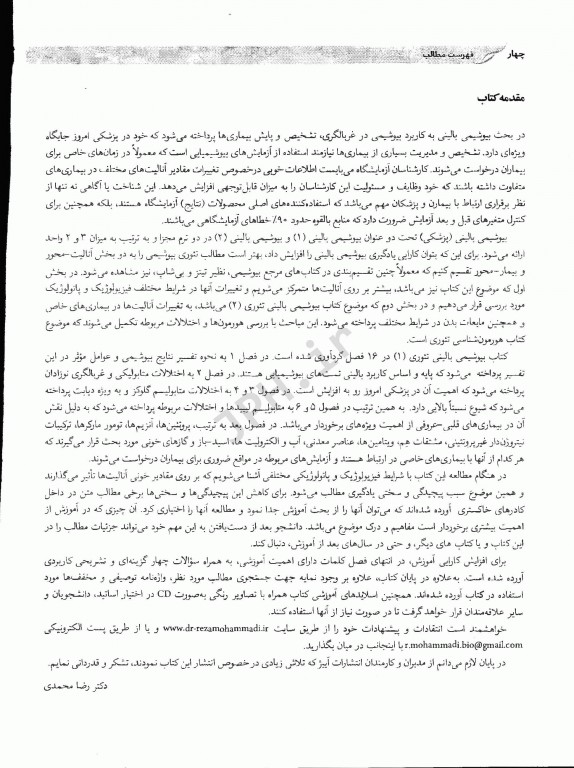 چهار
فهرست مطالب
مقدمه کتاب
در بحث بیوشیمی بالینی به کاربرد بیوشیمی در غربالگری، تشخیص و پایش بیماری‌ها پرداخته می‌شود که خود در پزشکی امروز جایگاه
ویژه‌ای دارد. تشخیص و مدیریت بسیاری از بیماری‌ها نیازمند استفاده از آزمایش‌های بیوشیمیایی است که معمولاً در زمان‌های خاص برای
بیماران درخواست می‌شوند. کارشناسان آزمایشگاه می‌بایست اطلاعات خوبی درخصوص تغییرات مقادیر آنالیت‌های مختلف در بیماری‌های
متفاوت داشته باشند که خود وظایف و مسئولیت این کارشناسان را به میزان قابل‌توجهی افزایش می‌دهد. این شناخت یا آگاهی نه تنها از
نظر برقراری ارتباط با بیماران و پزشکان مهم می‌باشد که استفاده‌کننده‌های اصلی محصولات (نتایج) آزمایشگاه هستند، بلکه همچنین برای
کنترل متغیرهای قبل و بعد آزمایش ضرورت دارد که منابع بالقوه حدود ۹۰٪ خطاهای آزمایشگاهی می‌باشند.
بیوشیمی بالینی (پزشکی) تحت دو عنوان بیوشیمی بالینی (۱) و بیوشیمی بالینی (۲) در دو ترم مجزا و به ترتیب به میزان ۳ و ۲ واحد
ارائه می‌شود. برای این که بتوان کارایی یادگیری بیوشیمی بالینی را افزایش داد، بهتر است مطالب تئوری بیوشیمی را به دو بخش آنالیت-محور
و بیمار-محور تقسیم کنیم که معمولاً چنین تقسیم‌بندی در کتاب‌های مرجع بیوشیمی، نظیر تیتز و بی‌شاپ، نیز مشاهده می‌شود. در بخش
اول که موضوع این کتاب نیز می‌باشد، بیشتر بر روی آنالیت‌ها متمرکز می‌شویم و تغییرات آنها در شرایط مختلف فیزیولوژیک و پاتولوژیک
مورد بررسی قرار می‌دهیم و در بخش دوم که موضوع کتاب بیوشیمی بالینی تئوری (۲) می‌باشد، به تغییرات آنالیت‌ها در بیماری‌های خاص
و همچنین مایعات بدن در شرایط مختلف پرداخته می‌شود. این مباحث با بررسی هورمون‌ها و اختلالات مربوطه تکمیل می‌شوند که موضوع
کتاب هورمون‌شناسی تئوری است.
کتاب بیوشیمی بالینی تئوری (۱) در ۱۶ فصل گردآوری شده است. در فصل ۱ به نحوه تفسیر نتایج بیوشیمی و عوامل مؤثر در این
تفسیر پرداخته می‌شود که پایه و اساس کاربرد بالینی تست‌های بیوشیمیایی هستند. در فصل ۲ به اختلالات متابولیکی و غربالگری نوزادان
پرداخته می‌شود که اهمیت آن در پزشکی امروز رو به افزایش است. در فصول ۳ و ۴ به اختلالات متابولیسم گلوکز و به ویژه دیابت پرداخته
می‌شود که شیوع نسبتاً بالایی دارد. به همین ترتیب در فصول ۵ و ۶ به متابولیسم لیپیدها و اختلالات مربوطه پرداخته می‌شود که به دلیل نقش
آن در بیماری‌های قلبی-عروقی از اهمیت ویژه‌ای برخوردار می‌باشد. در فصول بعد به ترتیب، پروتئین‌ها، آنزیم‌ها، تومور مارکرها، ترکیبات
نیتروژن‌دار غیرپروتئینی، مشتقات هم، ویتامین‌ها، عناصر معدنی، آب و الکترولیت ها، اسید-باز و گازهای خونی مورد بحث قرار می‌گیرند که
هر کدام از آنها با بیماری‌های خاصی در ارتباط هستند و آزمایش‌های مربوطه در مواقع ضروری برای بیماران درخواست می‌شوند.
در هنگام مطالعه این کتاب با شرایط فیزیولوژیک و پاتولوژیکی مختلفی آشنا می‌شویم که بر روی مقادیر خونی آنالیت‌ها تأثیر می‌گذارند
و همین موضوع سبب پیچیدگی و سختی یادگیری مطالب می‌شود. برای کاهش این پیچیدگی‌ها و سختی‌ها برخی مطالب متن در داخل
کادرهای خاکستری آورده شده‌اند که می‌توان آنها را از بحث آموزش جدا نمود و مطالعه آنها را اختیاری کرد. آن چیزی که در آموزش از
اهمیت بیشتری برخوردار است مفاهیم و درک موضوع می‌باشد. دانشجو بعد از دست‌یافتن به این مهم خود می‌تواند جزئیات مطالب را در
این کتاب و یا کتاب های دیگر، و حتی در سال‌های بعد از آموزش، دنبال کند.
برای افزایش کارایی آموزش، در انتهای فصل کلمات دارای اهمیت آموزشی، به همراه سؤالات چهار گزینه‌ای و تشریحی کاربردی
آورده شده است. به‌علاوه در پایان کتاب، علاوه بر وجود نمایه جهت جستجوی مطالب مورد نظر، واژه‌نامه توصیفی و مخفف‌ها مورد
استفاده در کتاب آورده شده‌اند. همچنین اسلایدهای آموزشی کتاب همراه با تصاویر رنگی به‌صورت CD در اختیار اساتید، دانشجویان و
سایر علاقه‌مندان قرار خواهد گرفت تا در صورت نیاز از آنها استفاده کنند.
خواهشمند است انتقادات و پیشنهادات خود را از طریق سایت www.dr-rezamohammadi.ir و یا از طریق پست الکترونیکی
r.mohammadi.bio@gmail.com با اینجانب در میان بگذارید.
در پایان لازم می‌دانم از مدیران و کارمندان انتشارات آییژ که تلاش زیادی در خصوص انتشار این کتاب نمودند، تشکر و قدردانی نمایم.
دکتر رضا محمدی